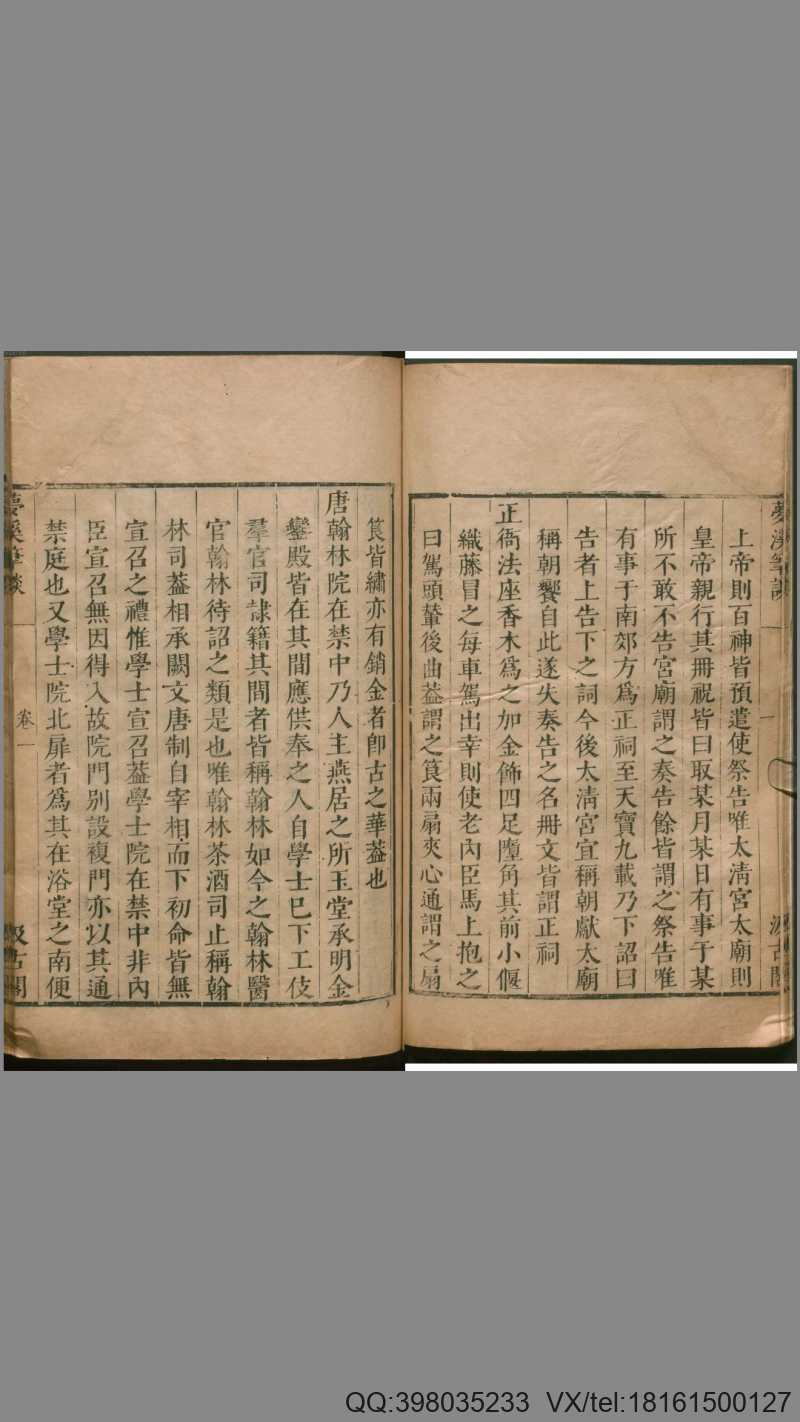 夢溪筆談
一
汲古閣
上帝則百神皆預遣使祭告唯太清宮太廟則
皇帝親行其冊祝皆曰取某月某日有事于某
所不敢不告宮廟謂之奏告餘皆謂之祭告唯
有事于南郊方爲正祠至天寶九載乃下詔曰
告者上告下之詞今後太清宮宜稱朝獻太廟
稱朝饗自此遂失奏告之名冊文皆謂正祠
正衙法座香木爲之加金飾四足墮角其前小偃
織藤冒之每車駕出幸則使老內臣馬上抱之
曰駕頭輦後曲葢謂之筤兩扇夾心通謂之扇
筤皆繡亦有銷金者卽古之華葢也
唐翰林院在禁中乃人主燕居之所玉堂承明金
鑾殿皆在其間應供奉之人自學士已下工伎
羣官司隷籍其間者皆稱翰林如今之翰林醫
官翰林待詔之類是也唯翰林茶酒司止稱翰
林司葢相承闕文唐制自宰相而下初命皆無
宣召之禮惟學士宣召葢學士院在禁中非內
臣宣召無因得入故院門別設複門亦以其通
禁庭也又學士院北扉者爲其在浴堂之南便
夢溪筆談
卷一
汲古閣
QQ:398035233 VX/tel:18161500127